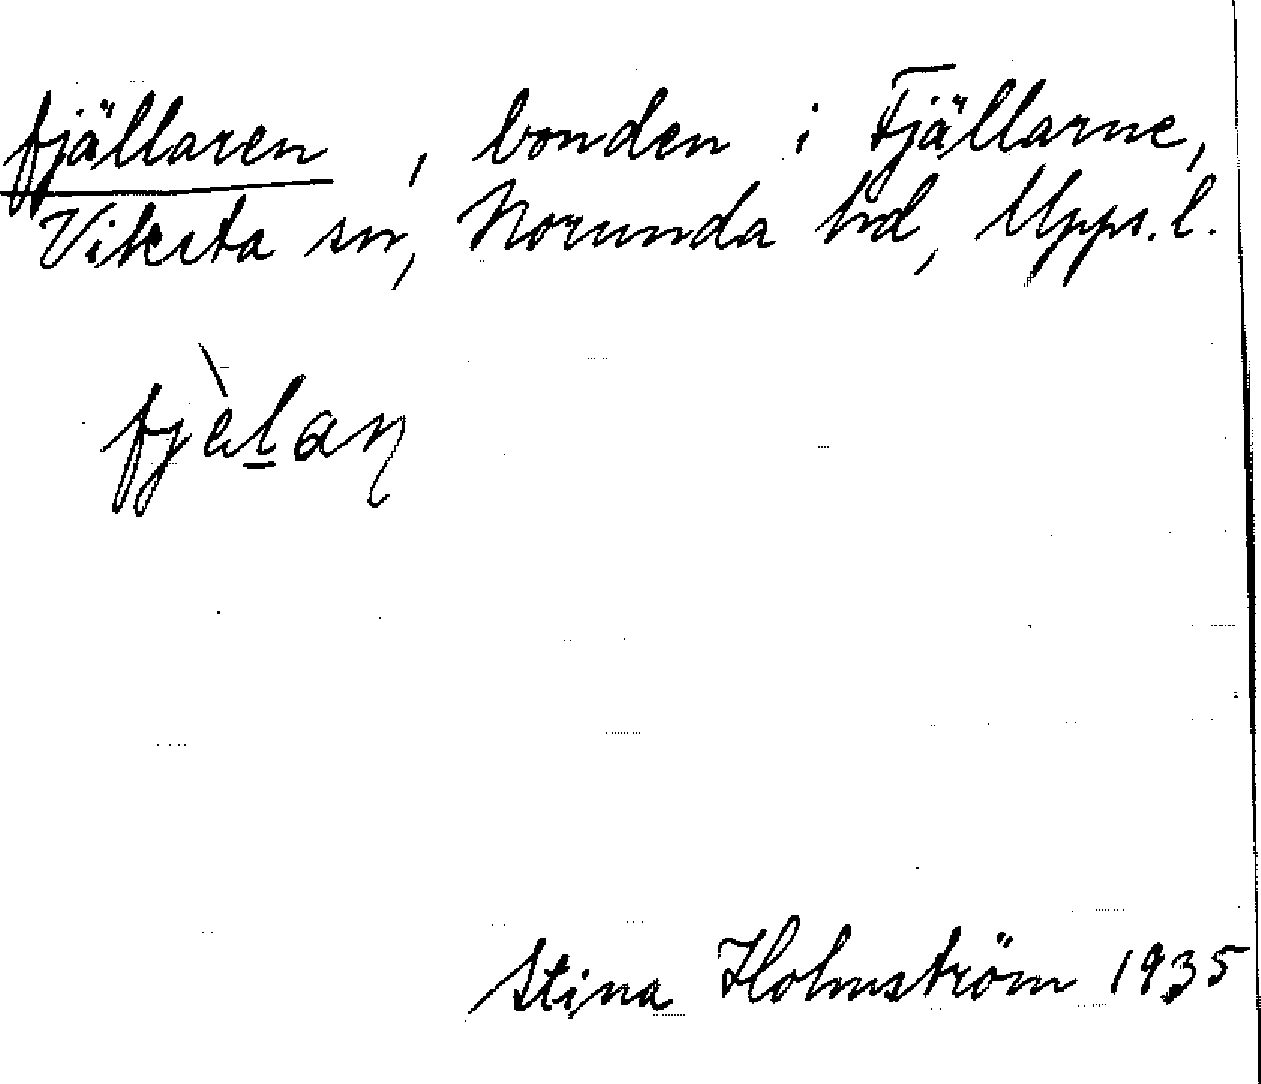 fjällaren, bonden i Fjällarne,
Viksta sn, Norunda hd, Upps. l.
fjèl̲aɳ
Stina Holmström 1935